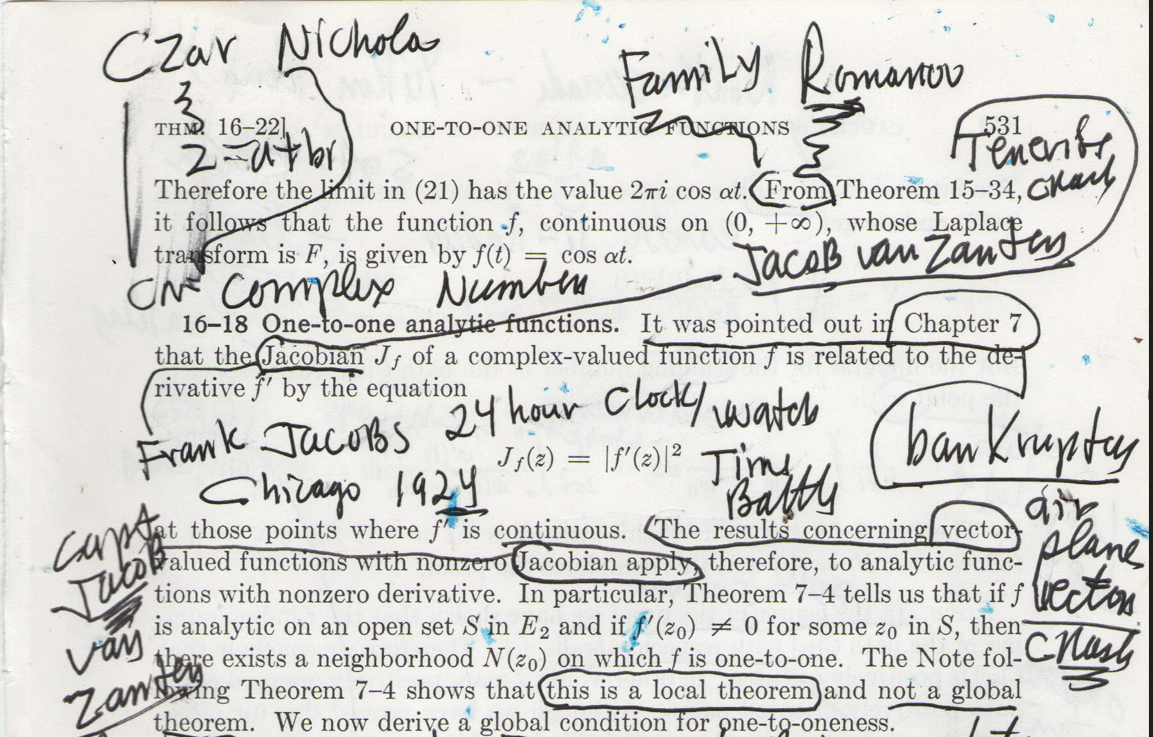 Czar Nichola
Family Romanov
THM. 16–22]
ONE-TO-ONE ANALYTIC FUNCTIONS
531
Z = a + bi
Tenerife
crash
Therefore the limit in (21) has the value 2πi cos αt. From Theorem 15–34,
it follows that the function f, continuous on (0, +∞), whose Laplace
transform is F, is given by f(t) = cos αt.
Jacob van Zanten
on Complex Numbers
16–18 One-to-one analytic functions. It was pointed out in Chapter 7
that the Jacobian J_f of a complex-valued function f is related to the de-
rivative f′ by the equation
24 hour Clock/watch
Frank Jacobs
J_f(z) = |f′(z)|²
Time
Battles
bankruptcy
Chicago 1924
at those points where f′ is continuous. The results concerning vector-
valued functions with nonzero Jacobian apply, therefore, to analytic func-
tions with nonzero derivative. In particular, Theorem 7–4 tells us that if f
is analytic on an open set S in E₂ and if f′(z₀) ≠ 0 for some z₀ in S, then
there exists a neighborhood N(z₀) on which f is one-to-one. The Note fol-
lowing Theorem 7–4 shows that this is a local theorem and not a global
theorem. We now derive a global condition for one-to-oneness.
Capt
Jacob
van
Zanten
air
plane
vectors
crash